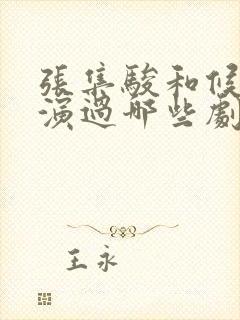 張集駿和候
演過哪些劇
王永